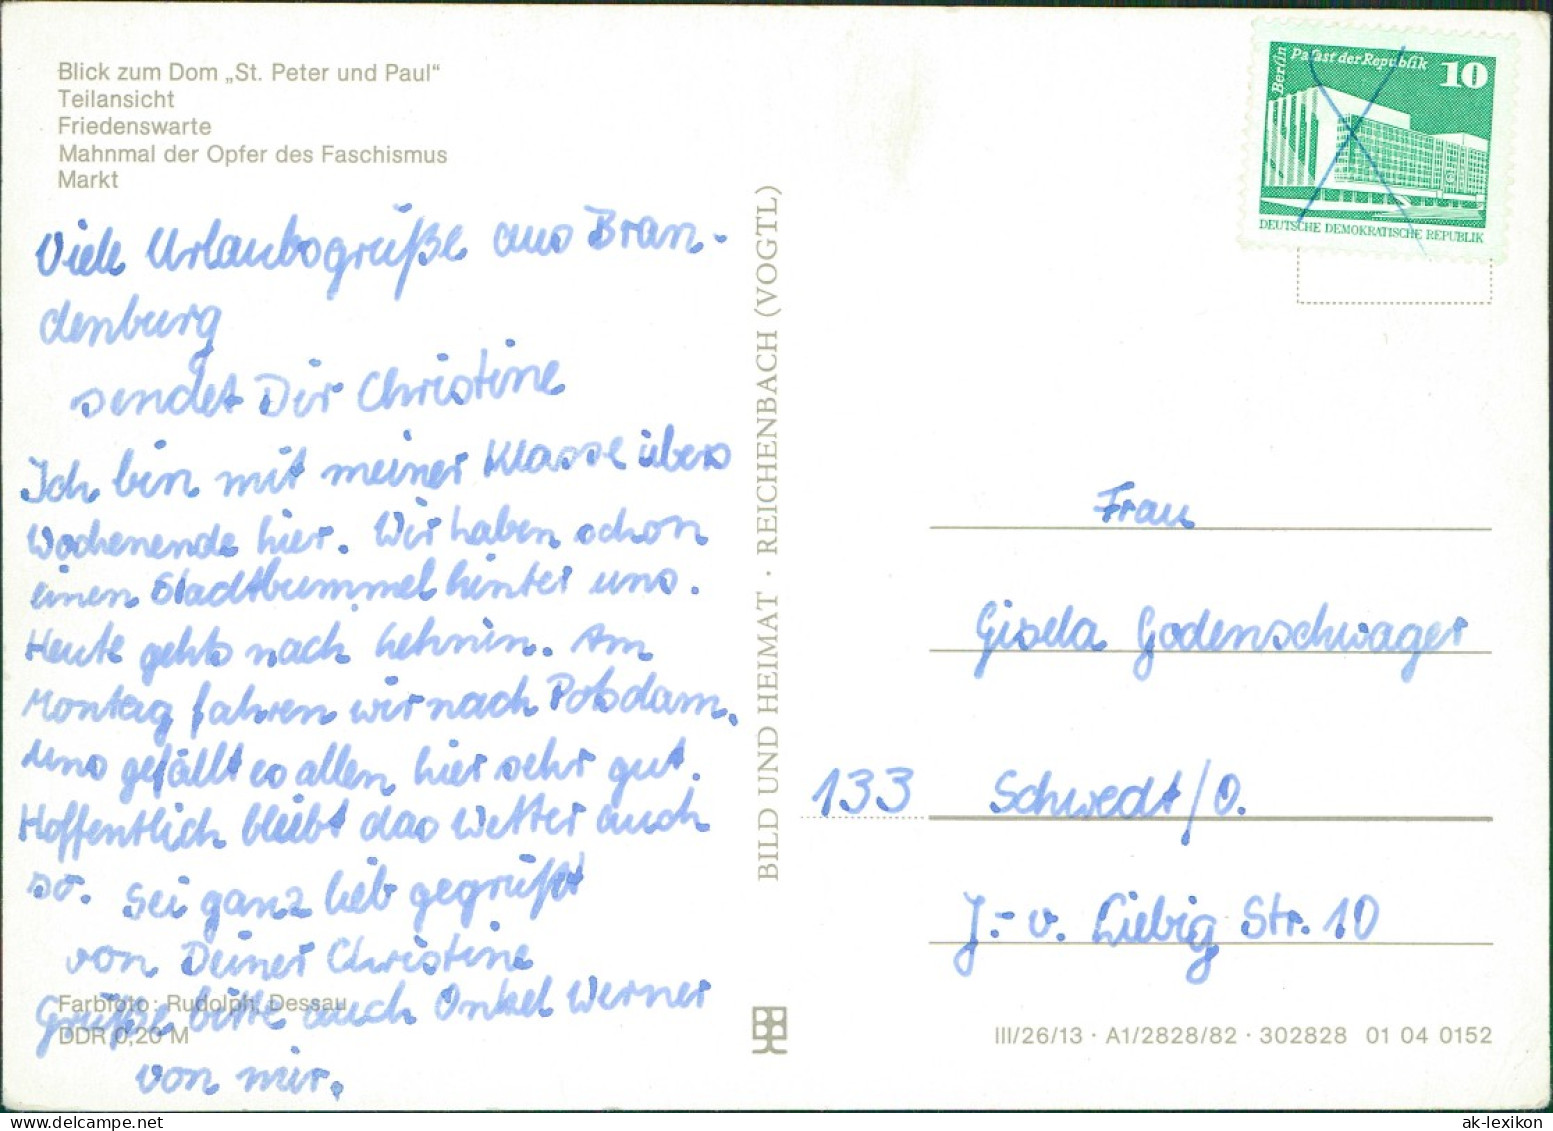 Blick zum Dom „St. Peter und Paul“
Teilansicht
Friedenswarte
Mahnmal der Opfer des Faschismus
Markt
Viele Urlaubsgrüße aus Bran-
denburg
sendet Dir Christine
Ich bin mit meiner Klasse übers
Wochenende hier. Wir haben schon
einen Stadtbummel hinter uns.
Heute gehts nach Lehnin. Am
Montag fahren wir nach Potsdam.
Uns gefällt es allen hier sehr gut.
Hoffentlich bleibt das Wetter auch
so. Sei ganz lieb gegrüßt
von Deiner Christine
Grüße bitte auch Onkel Werner
von mir.
Farbfoto: Rudolph, Dessau
DDR 0,20 M
BILD UND HEIMAT · REICHENBACH (VOGTL)
Berlin
Palast der Republik
10
DEUTSCHE DEMOKRATISCHE REPUBLIK
Frau
Gisela Godenschwager
133 Schwedt/O.
J.-v. Liebig Str. 10
III/26/13 · A1/2828/82 · 302828 01 04 0152
ak-lexikon.com